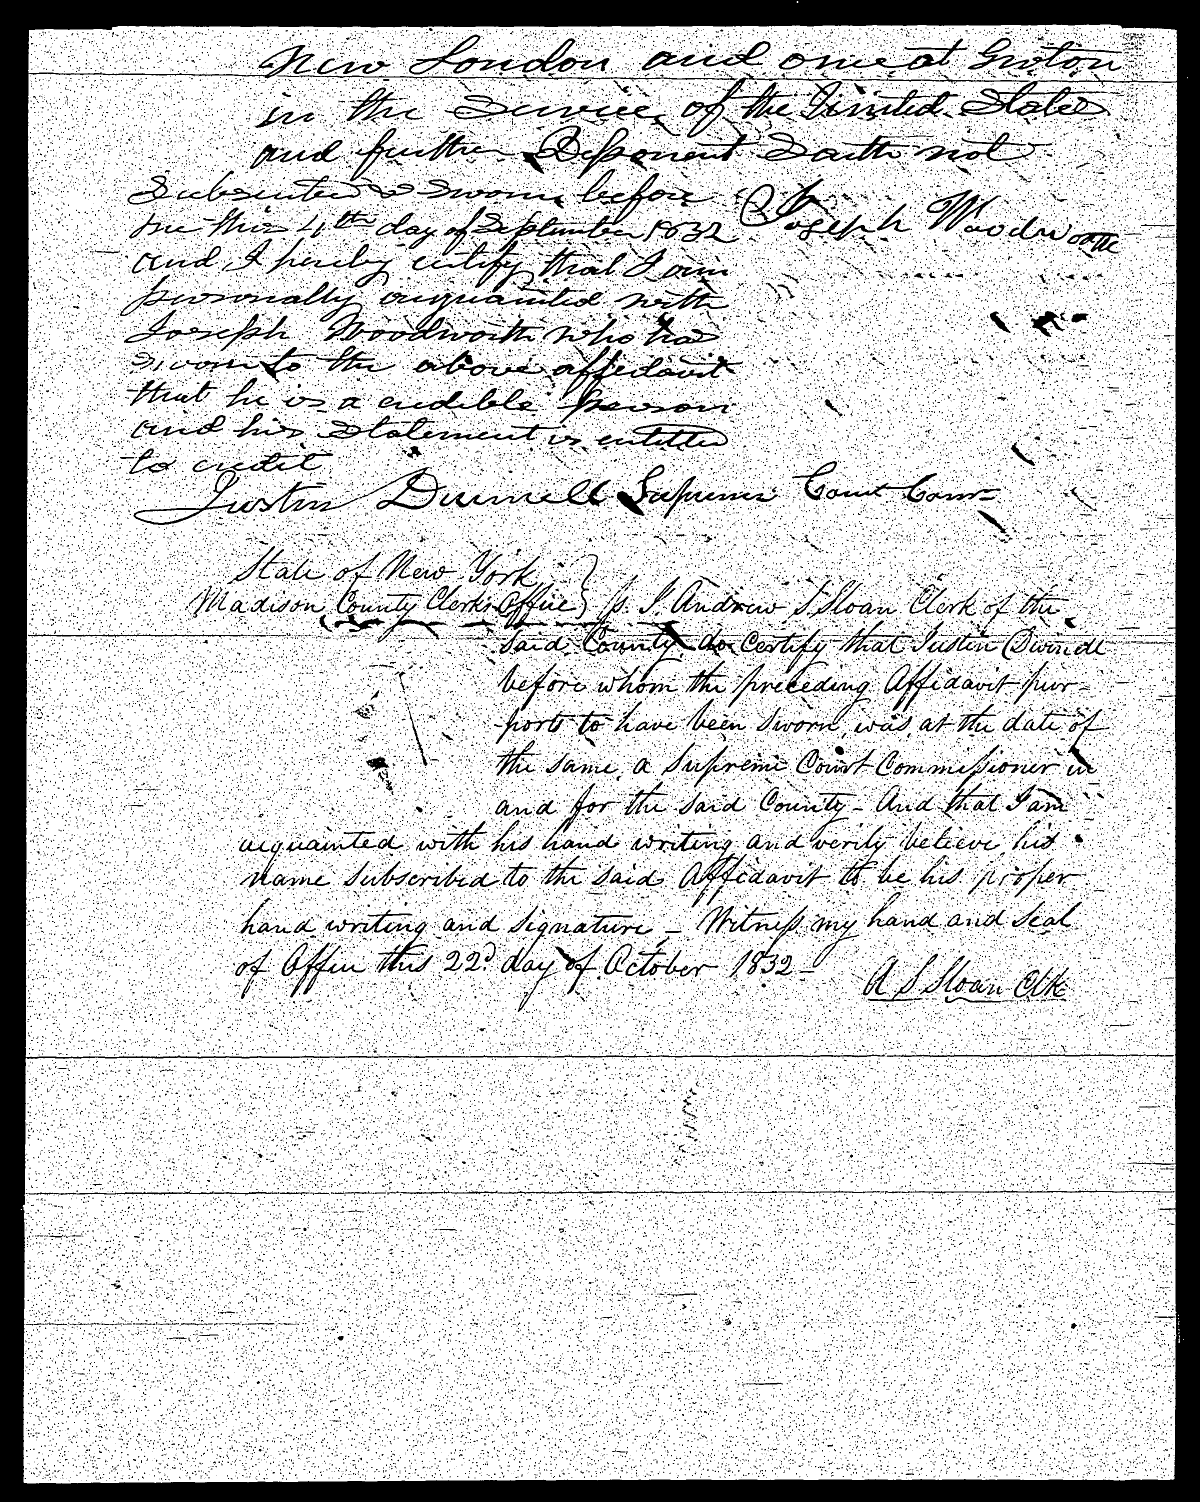 New London and one at Groton
in the Service of the United States
and further Deponent Saith not
Subscribed & Sworn before
me this 4th day of September 1832
Joseph Woodworth
and I hereby certify that I am
personally acquainted with
Joseph Woodworth who has
sworn to the above affidavit
that he is a credible person
and his Statement is entitled
to credit
Justin Dwinell Supreme Court Comr
State of New York
Madison County Clerks Office } ss. I, Andrew S Sloan Clerk of the
said County do Certify that Justin Dwinell
before whom the preceding Affidavit pur-
ports to have been sworn, was, at the date of
the same, a Supreme Court Commissioner in
and for the said County - And that I am
acquainted with his hand writing and verily believe his
name subscribed to the said Affidavit to be his proper
hand writing and signature - Witness my hand and seal
of Office this 22d day of October 1832 -
A S Sloan Clk